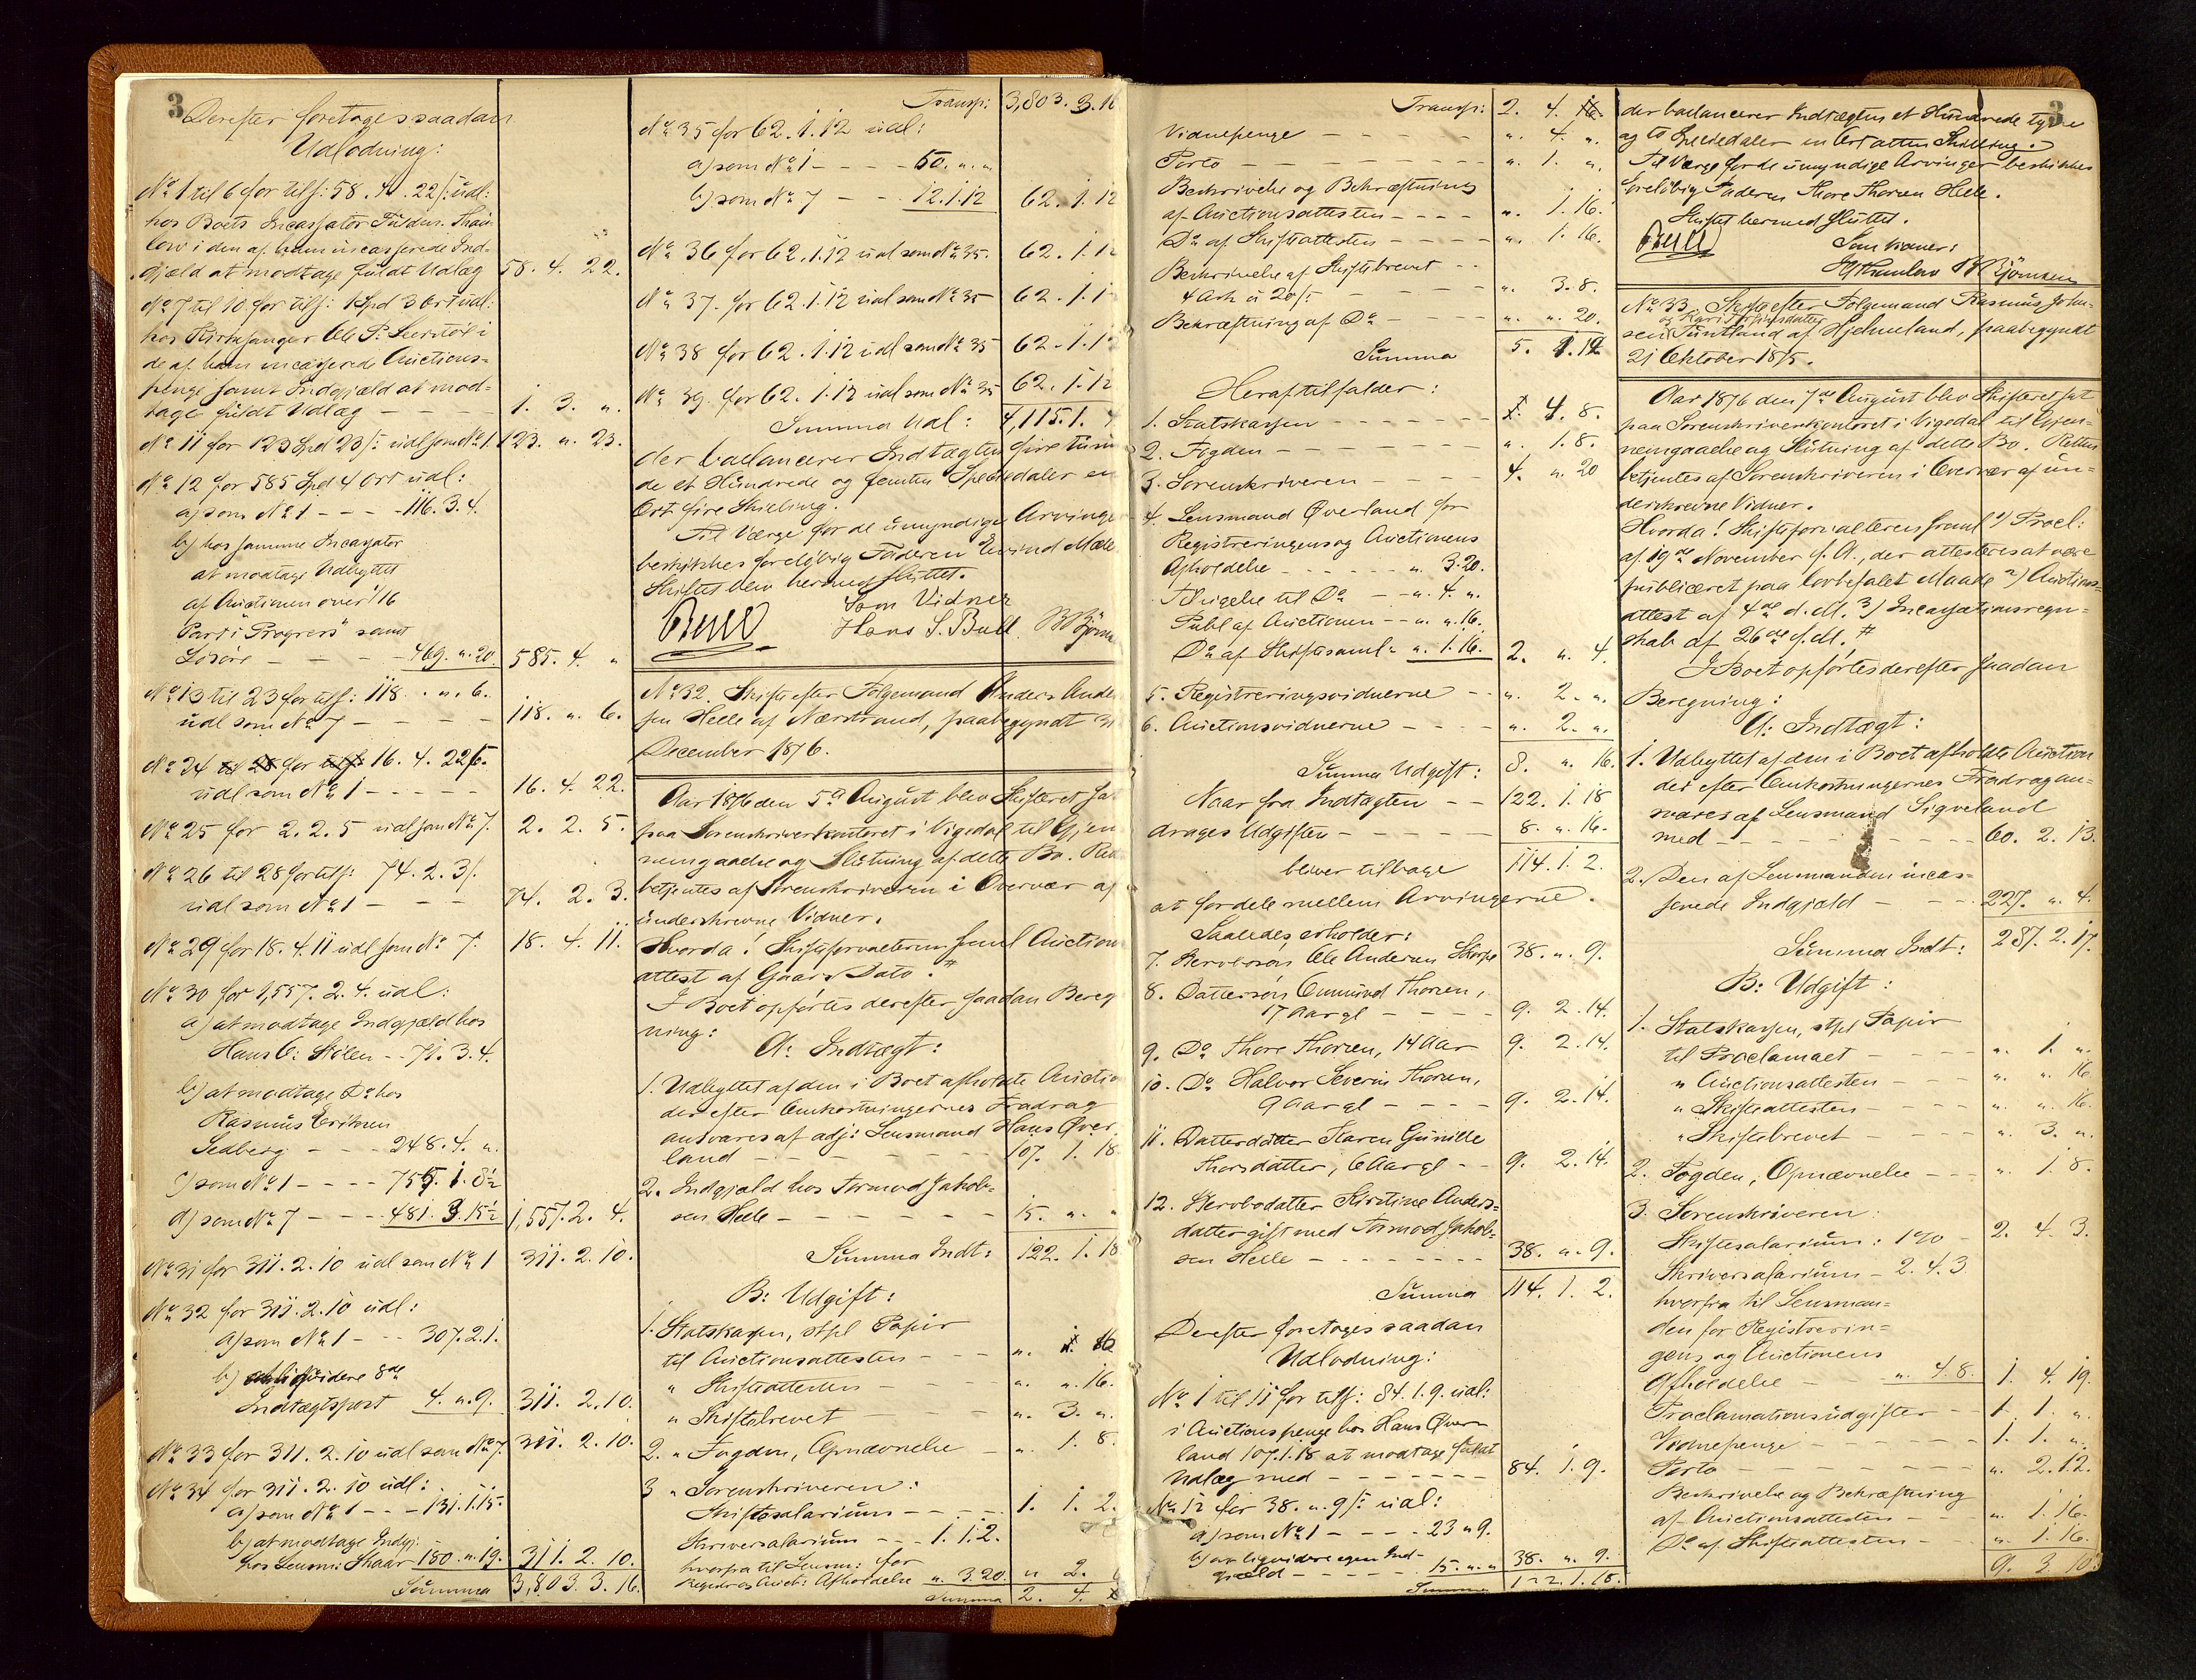 3
Derefter foretages saadan
Udlodning:
No 1 til 6 for tilf: 58. 4. 22 /: udl:
hos Boets Incassator Fuldm. Thau-
low i den af ham incasserede Ind-
gjæld at modtage fuldt Udlæg 58. 4. 22.
No 7 til 10 for tilf: 1 Spd 3 Ort udl:
hos Kirkesanger Ole P.
de af ham incasserede Auctions-
penge samt Indgjæld at mod-
tage fuldt Udlæg - - - - 1. 3. "
No 11 for 123 Spd 23 /: udl som No 1. 123. " 23.
No 12 for 585 Spd 4 Ort udl:
a) som No 1 - - - 116. 3. 4.
b) hos samme Incassator
at modtage Udbyttet
af Auctionen over 1/16
Part i "Progress" samt
Løsøre - - - - 469. " 20. 585. 4. "
No 13 til 23 for tilf: 118. " 6.
udl som No 7 - - - - 118. " 6.
No 24 til 28 for tilf: 16. 4. 22 /:
udl som No 1 - - - - 16. 4. 22.
No 25 for 2. 2. 5 udl som No 7. 2. 2. 5.
No 26 til 28 for tilf: 74. 2. 3 /.
udl som No 1 - - - 74. 2. 3.
No 29 for 18. 4. 11 udl som No 7. 18. 4. 11.
No 30 for 1,557. 2. 4. udl:
a) at modtage Indgjæld hos
Hans C: Stølen - - 71. 3. 4.
b) at modtage Do hos
Rasmus Eriksen
Sedberg - - - 248. 4. "
c) som No 1 - - - - 755. 1. 8½
d) som No 7 - - - 481. 3. 15½ 1,557. 2. 4.
No 31 for 311. 2. 10 udl som No 1 311. 2. 10.
No 32 for 311. 2. 10 udl:
a) som No 1 - - - 307. 2. 1.
b) at liqvidere 8de
Indtægtspost 4. " 9. 311. 2. 10.
No 33 for 311. 2. 10 udl som No 7. 311. 2. 10.
No 34 for 311. 2. 10 udl:
a) som No 1 - - - 131. 1. 15.
b) at modtage Indgj:
hos Lensm: Skaar 180. " 19. 311. 2. 10.
Summa 3,803. 3. 16.
Transp: 3,803. 3. 16
No 35 for 62. 1. 12 udl:
a) som No 1 - - - - 50. " "
b) som No 7 - - - 12. 1. 12 62. 1. 12
No 36 for 62. 1. 12 udl som No 35. 62. 1. 1
No 37. for 62. 1. 12 udl som No 35 62. 1. 1
No 38 for 62. 1. 12 udl som No 35 62. 1. 1
No 39. for 62. 1. 12 udl som No 35 62. 1. 12
Summa Udl: 4,115. 1. 4
der balancerer Indtægten fire tusin
de et Hundrede og femten Speciedaler en
Ort fire Skilling.
Til Værge for de umyndige Arvinger
beskikkes foreløbig Faderen Eivind Mæle
Skiftet blev hermed sluttet.
Bull Som Vidner
Hans S. Bull. B Bjørns
No 32. Skifte efter Følgemand Anders Ander
sen Helle af Nærstrand, paabegyndt 31
December 1876.
Aar 1876 den 5te August blev Skifteret sat
paa Sorenskriverkontoret i Vigedal til Gjen
nemgaaelse og Slutning af dette Bo. Ret
betjentes af Sorenskriveren i Overvær af
underskrevne Vidner.
Hvorda! Skifteforvalteren freml Auction
attest af Gaars Dato. #
I Boet opførtes derefter saadan Bereg
ning:
A: Indtægt:
1. Udbyttet af den i Boet afholdte Auctio
der efter Omkostningernes Fradrag
ansvares af adj: Lensmand Hans Øver
land - - - - - - 107. 1. 18
2. Indgjæld hos Tormod Jakob-
sen Helle - - - - - - 15. " "
Summa Indt: 122. 1. 18
B: Udgift:
1. Statskassen, stpl Papir
til Auctionsattesten - - - ". ". 16
" Skifteattesten - - - ". ". 16.
" Skiftebrevet - - - ". 3. ".
2. " Fogden, Opnævnelse - ". 1. 8.
3 " Sorenskriveren:
Skiftesalarium - - - 1. 1. 2.
Skriversalarium - - - 1. 1. 2.
hvorfra til Lensm: for
Regnskr og Auct: Afholdelse ". 3. 20. " 2.
Summa 2. 4.
Transp: 2. 4. 16.
Vidnepenge - - - - - ". 4. ".
Porto - - - - - ". 1. ".
Beskrivelse og Bekræftning
af Auctionsattesten - - - - ". 1. 16.
Do af Skifteattesten - - - - ". 1. 16.
Beskrivelse af Skiftebrevet - -
4 Ark à 20 /: - - - - ". 3. 8.
Bekræftning af Do - - - - ". ". 20.
Summa 5. 1. 12
Heraf tilfalder:
1. Statskassen - - - - - 1. 4. 8.
2. Fogden - - - - - ". 1. 8.
3. Sorenskriveren - - - - 4. ". 20
4. Lensmand Øverland for
Registreringens og Auctionens
Afholdelse - - - - - ". 3. 20.
Tilsigelse til Do - - ". 4. ".
Publ af Auctionen - - ". ". 16.
Do af Skiftesaml: ". 1. 16. 2. ". 4.
5. Registreringsvidnerne - - ". 2. ".
6. Auctionsvidnerne - - - ". 2. ".
Summa Udgift: 8. ". 16.
Naar fra Indtægten - - 122. 1. 18
drages Udgiften - - - - 8. ". 16.
bliver tilbage 114. 1. 2.
at fordele mellem Arvingerne.
Saaledes erholder:
7. Stervbosøn Ole Andersen Skorpe 38. ". 9.
8. Dattersøn Ommund Thorsen,
17 Aar gl - - - - 9. 2. 14.
9. Do Thore Thorsen, 14 Aar 9. 2. 14.
10. Do Halvor Severin Thorsen,
9 Aar gl - - - - 9. 2. 14.
11. Datterdatter Karen Gunille
Thorsdatter, 6 Aar gl - - 9. 2. 14.
12. Stervbodatter Kirstine Anders-
datter gift med Tormod Jakob-
sen Helle - - - - - - 38. ". 9.
Summa 114. 1. 2.
Derefter foretages saadan
Udlodning:
No 1 til 11 for tilf: 84. 1. 9. udl:
i Auctionspenge hos Hans Øver-
land 107. 1. 18 at modtage fuldt
Udlæg med - - - - - - 84. 1. 9.
No 12 for 38. " 9 /: udl:
a) som No 1 - - - - 23 " 9.
b) at liqvidere egen Ind-
gjæld - - - - - 15. " " 38. ". 9.
Summa 122. 1. 18.
3
der balancerer Indtægten et Hundrede tyve
og to Speciedaler en Ort atten Skilling.
Til Værge for de umyndige Arvinger beskikkes
foreløbig Faderen Thore Thorsen Helle.
Skiftet hermed sluttet.
Bull Som Vidner:
Thaulow B Bjørnsen
No 33. Skifte efter Følgemand Rasmus John-
og Kari Torbjørnsdatter
sen Tuntland af Hjelmeland, paabegyndt
21 Oktober 1875.
Aar 1876 den 7de August blev Skifteret sat
paa Sorenskriverkontoret i Vigedal til Gjen-
nemgaaelse og Slutning af dette Bo. Retten
betjentes af Sorenskriveren i Overvær af un-
derskrevne Vidner.
Hvorda! Skifteforvalteren freml 1) Procl:
af 19de November f. A., der attesteres at være
publiceret paa lovbefalet Maade 2) Auctions-
attest af 4de d. M. 3) Incassationsregn-
skab af 26de f. M. #
I Boet opførtes derefter saadan
Beregning:
A: Indtægt:
1. Udbyttet af den i Boet afholdte Auction
der efter Omkostningernes Fradrag an-
svares af Lensmand Sigveland
med - - - - - - - - 60. 2. 13.
2. Den af Lensmanden incas-
serede Indgjæld - - - - 227. ". 4.
Summa Indt: 287. 2. 17.
B: Udgift:
1. Statskassen, stpl Papir
til Proclamaet - - - - ". 1. ".
" Auctionsattesten - - - ". ". 16
" Skifteattesten - - - - ". ". 16.
" Skiftebrevet - - - - ". 3. ".
2. Fogden, Opnævnelse - - - ". 1. 8.
3. Sorenskriveren:
Skiftesalarium: 1% - 2. 4. 3.
Skriversalarium - 2. 4. 3
hvorfra til Lensman-
den for Registrerin-
gens og Auctionens
Afholdelse - - ". 4. 8. 1. 4. 19.
Proclamationsudgifter - - 1. 1. ".
Vidnepenge - - - - - 1. 1. ".
Porto - - - - - ". 2. 12.
Beskrivelse og Bekræftning
af Auctionsattesten - - - ". 1. 16.
Do af Skifteattesten - - - ". 1. 16.
9. 3. 10.